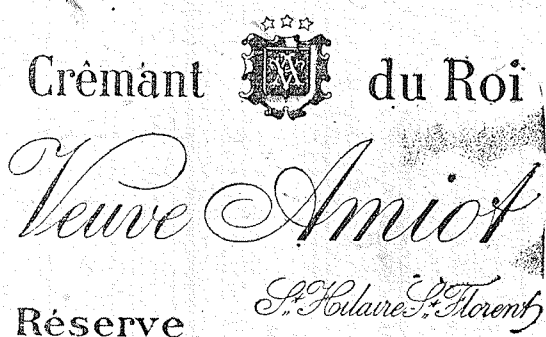 Crêmant du Roi
Veuve Amiot
St Hilaire St Florent
Réserve